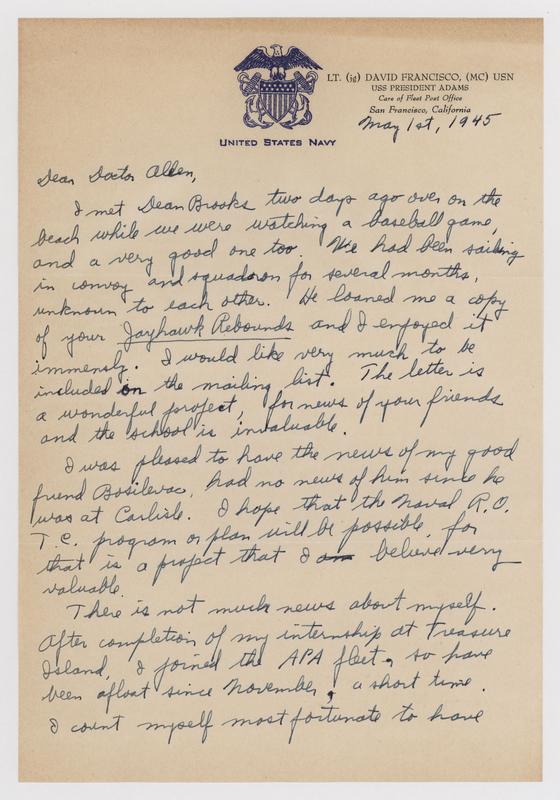 LT. (jg) DAVID FRANCISCO, (MC) USN
USS PRESIDENT ADAMS
Care of Fleet Post Office
San Francisco, California
UNITED STATES NAVY
May 1st, 1945
Dear Doctor Allen,
I met Dean Brooks two days ago over on the
beach while we were watching a baseball game,
and a very good one too. We had been sailing
in convoy and squadron for several months,
unknown to each other. He loaned me a copy
of your Jayhawk Rebounds and I enjoyed it
immensly. I would like very much to be
included on the mailing list. The letter is
a wonderful project, for news of your friends
and the school is invaluable.
I was pleased to have the news of my good
friend Bosilevac, had no news of him since he
was at Carlisle. I hope that the Naval R.O.
T.C. program or plan will be possible, for
that is a project that I am believe very
valuable.
There is not much news about myself.
After completion of my internship at Treasure
Island, I joined the APA fleet, so have
been afloat since November, a short time.
I count myself most fortunate to have